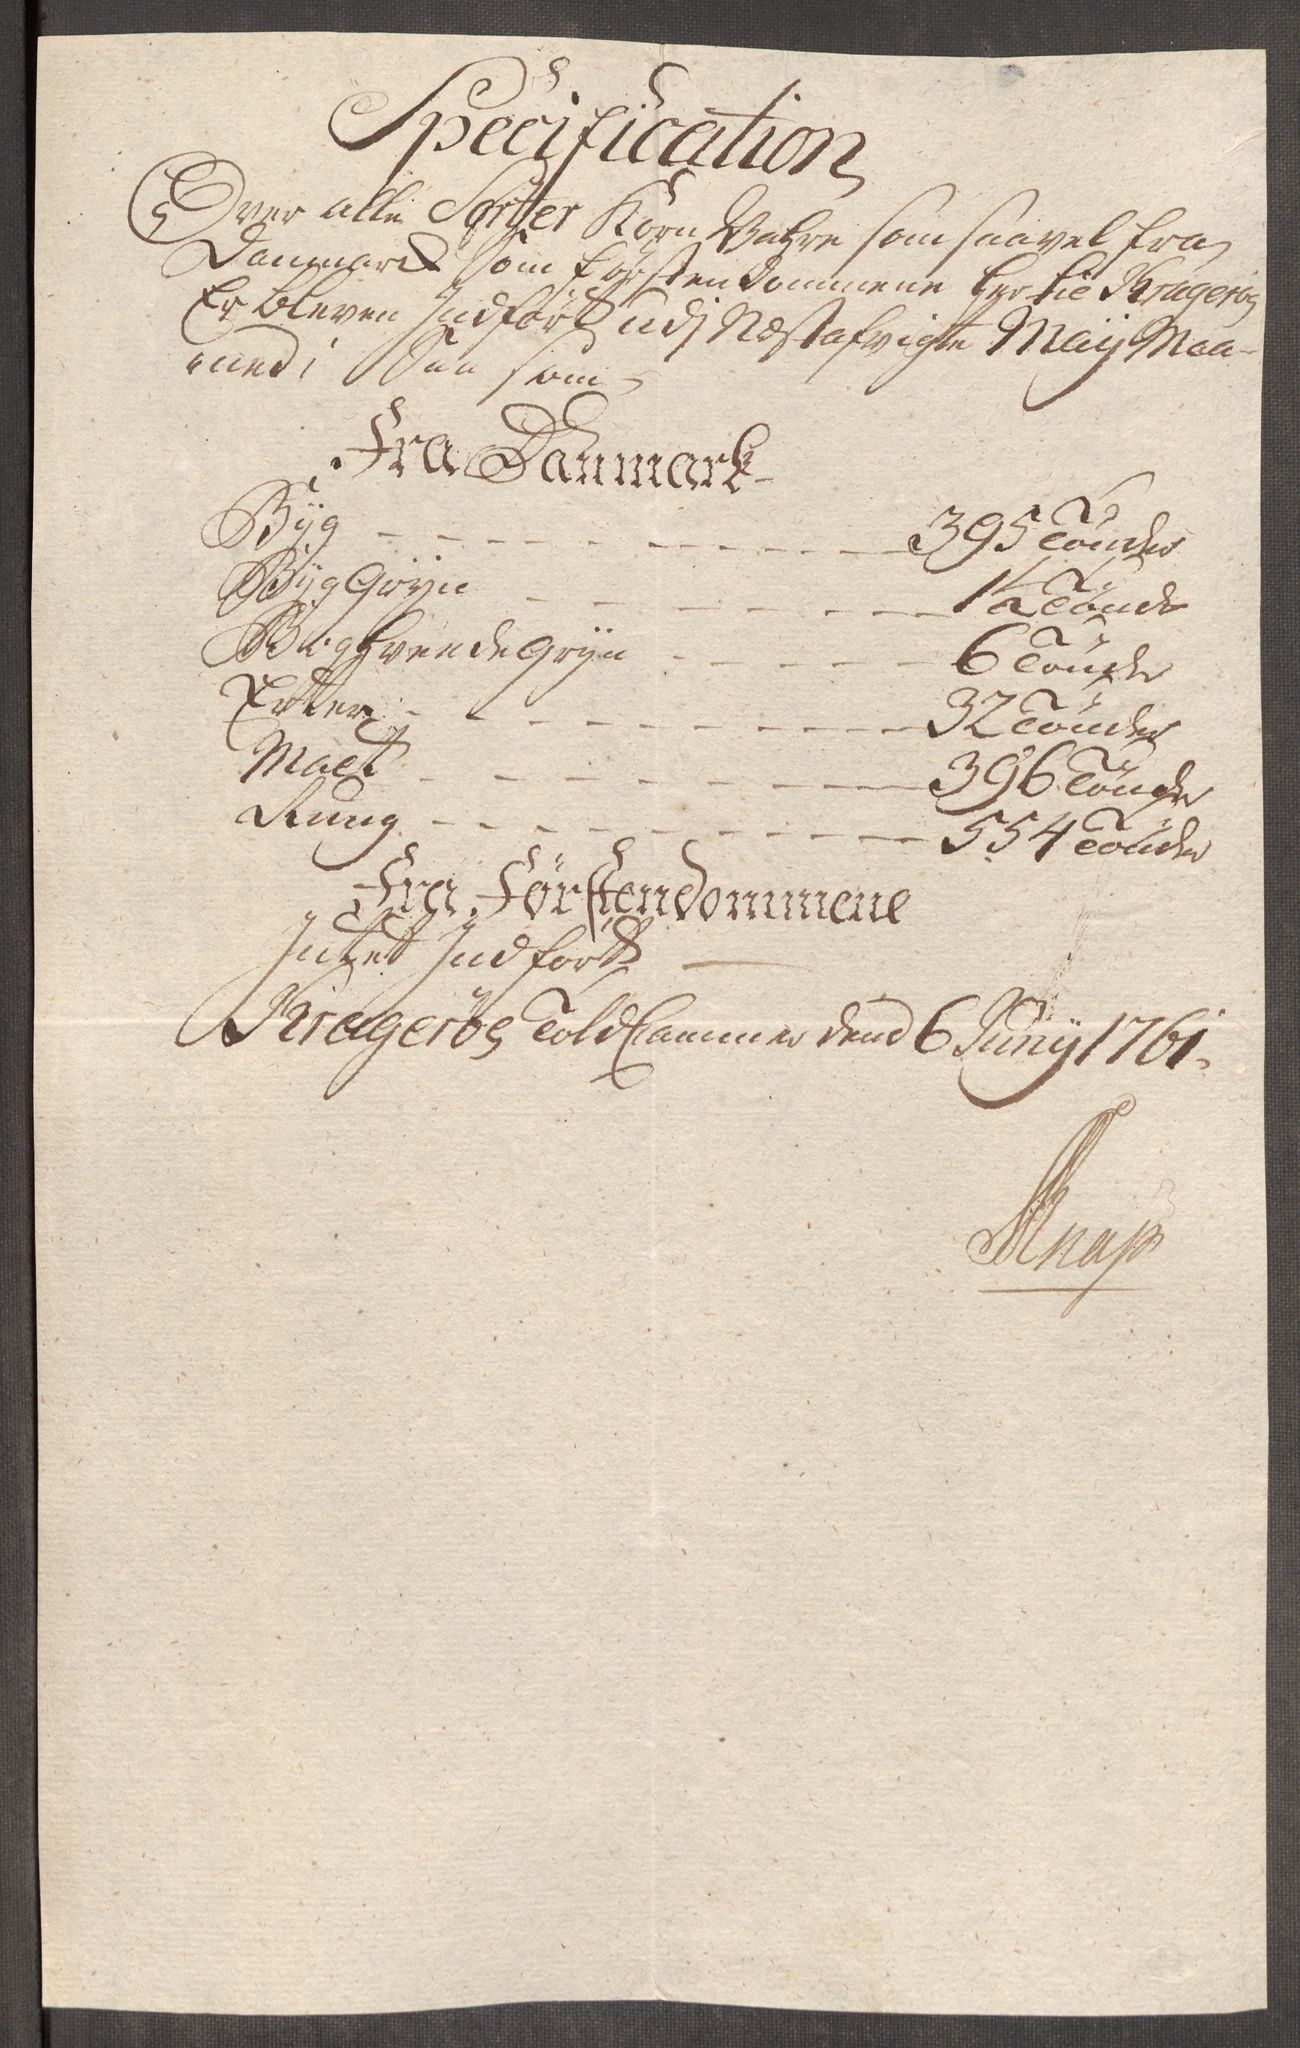 Specification
Over alle Sorter Korn Vahre som saavel fra
Danmarck som Førstendommene her til Krageröe
Er bleven Indført udj Næstafvigte Maij Maa-
ned; Saa som
Fra Danmark
Byg 395 Tönder
Byg Gryn 1½ Tönde
Boghvede Gryn 6 Tönder
Erter 32 Tönder
Malt 396 Tönder
Rung 554 Tönder
Fra Førstendommene
Intet Indført
Krageröe Told Cammer dend 6 Junij 1761.
Knap